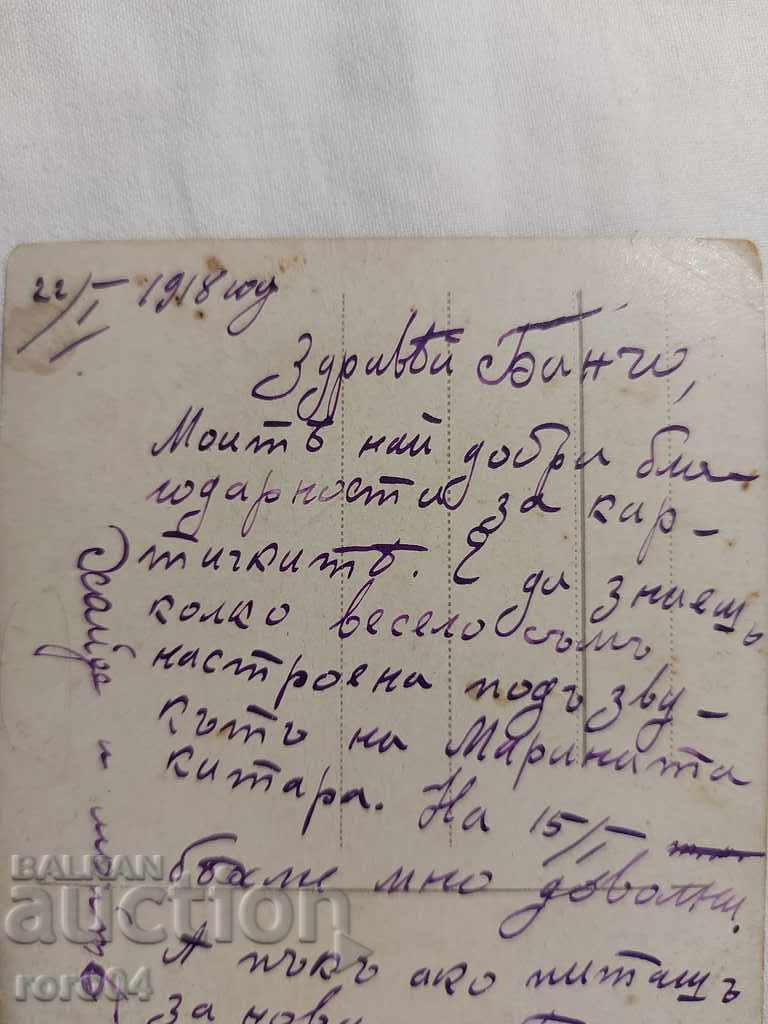 22/I 1918 год
Здравѣй Банчо,
Моитѣ най добри бла-
годарности за кар-
тичкитѣ. Е да знаешъ
колко весело съмъ
настроена подъ зву-
кътъ на Марината
китара. На 15/I
бѣхме мно доволни.
А пъкъ ако питашъ
за нови
Хайде и
BALKAN
auction
roro04